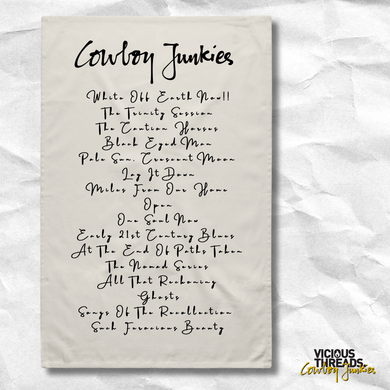 Cowboy Junkies
White Off Earth Now!!
The Trinity Session
The Caution Horses
Black Eyed Man
Pale Sun, Crescent Moon
Lay It Down
Miles From Our Home
Open
One Soul Now
Early 21st Century Blues
At The End Of Paths Taken
The Nomad Series
All That Reckoning
Ghosts
Songs Of The Recollection
Such Ferocious Beauty
VICIOUS
THREADS.
Cowboy Junkies